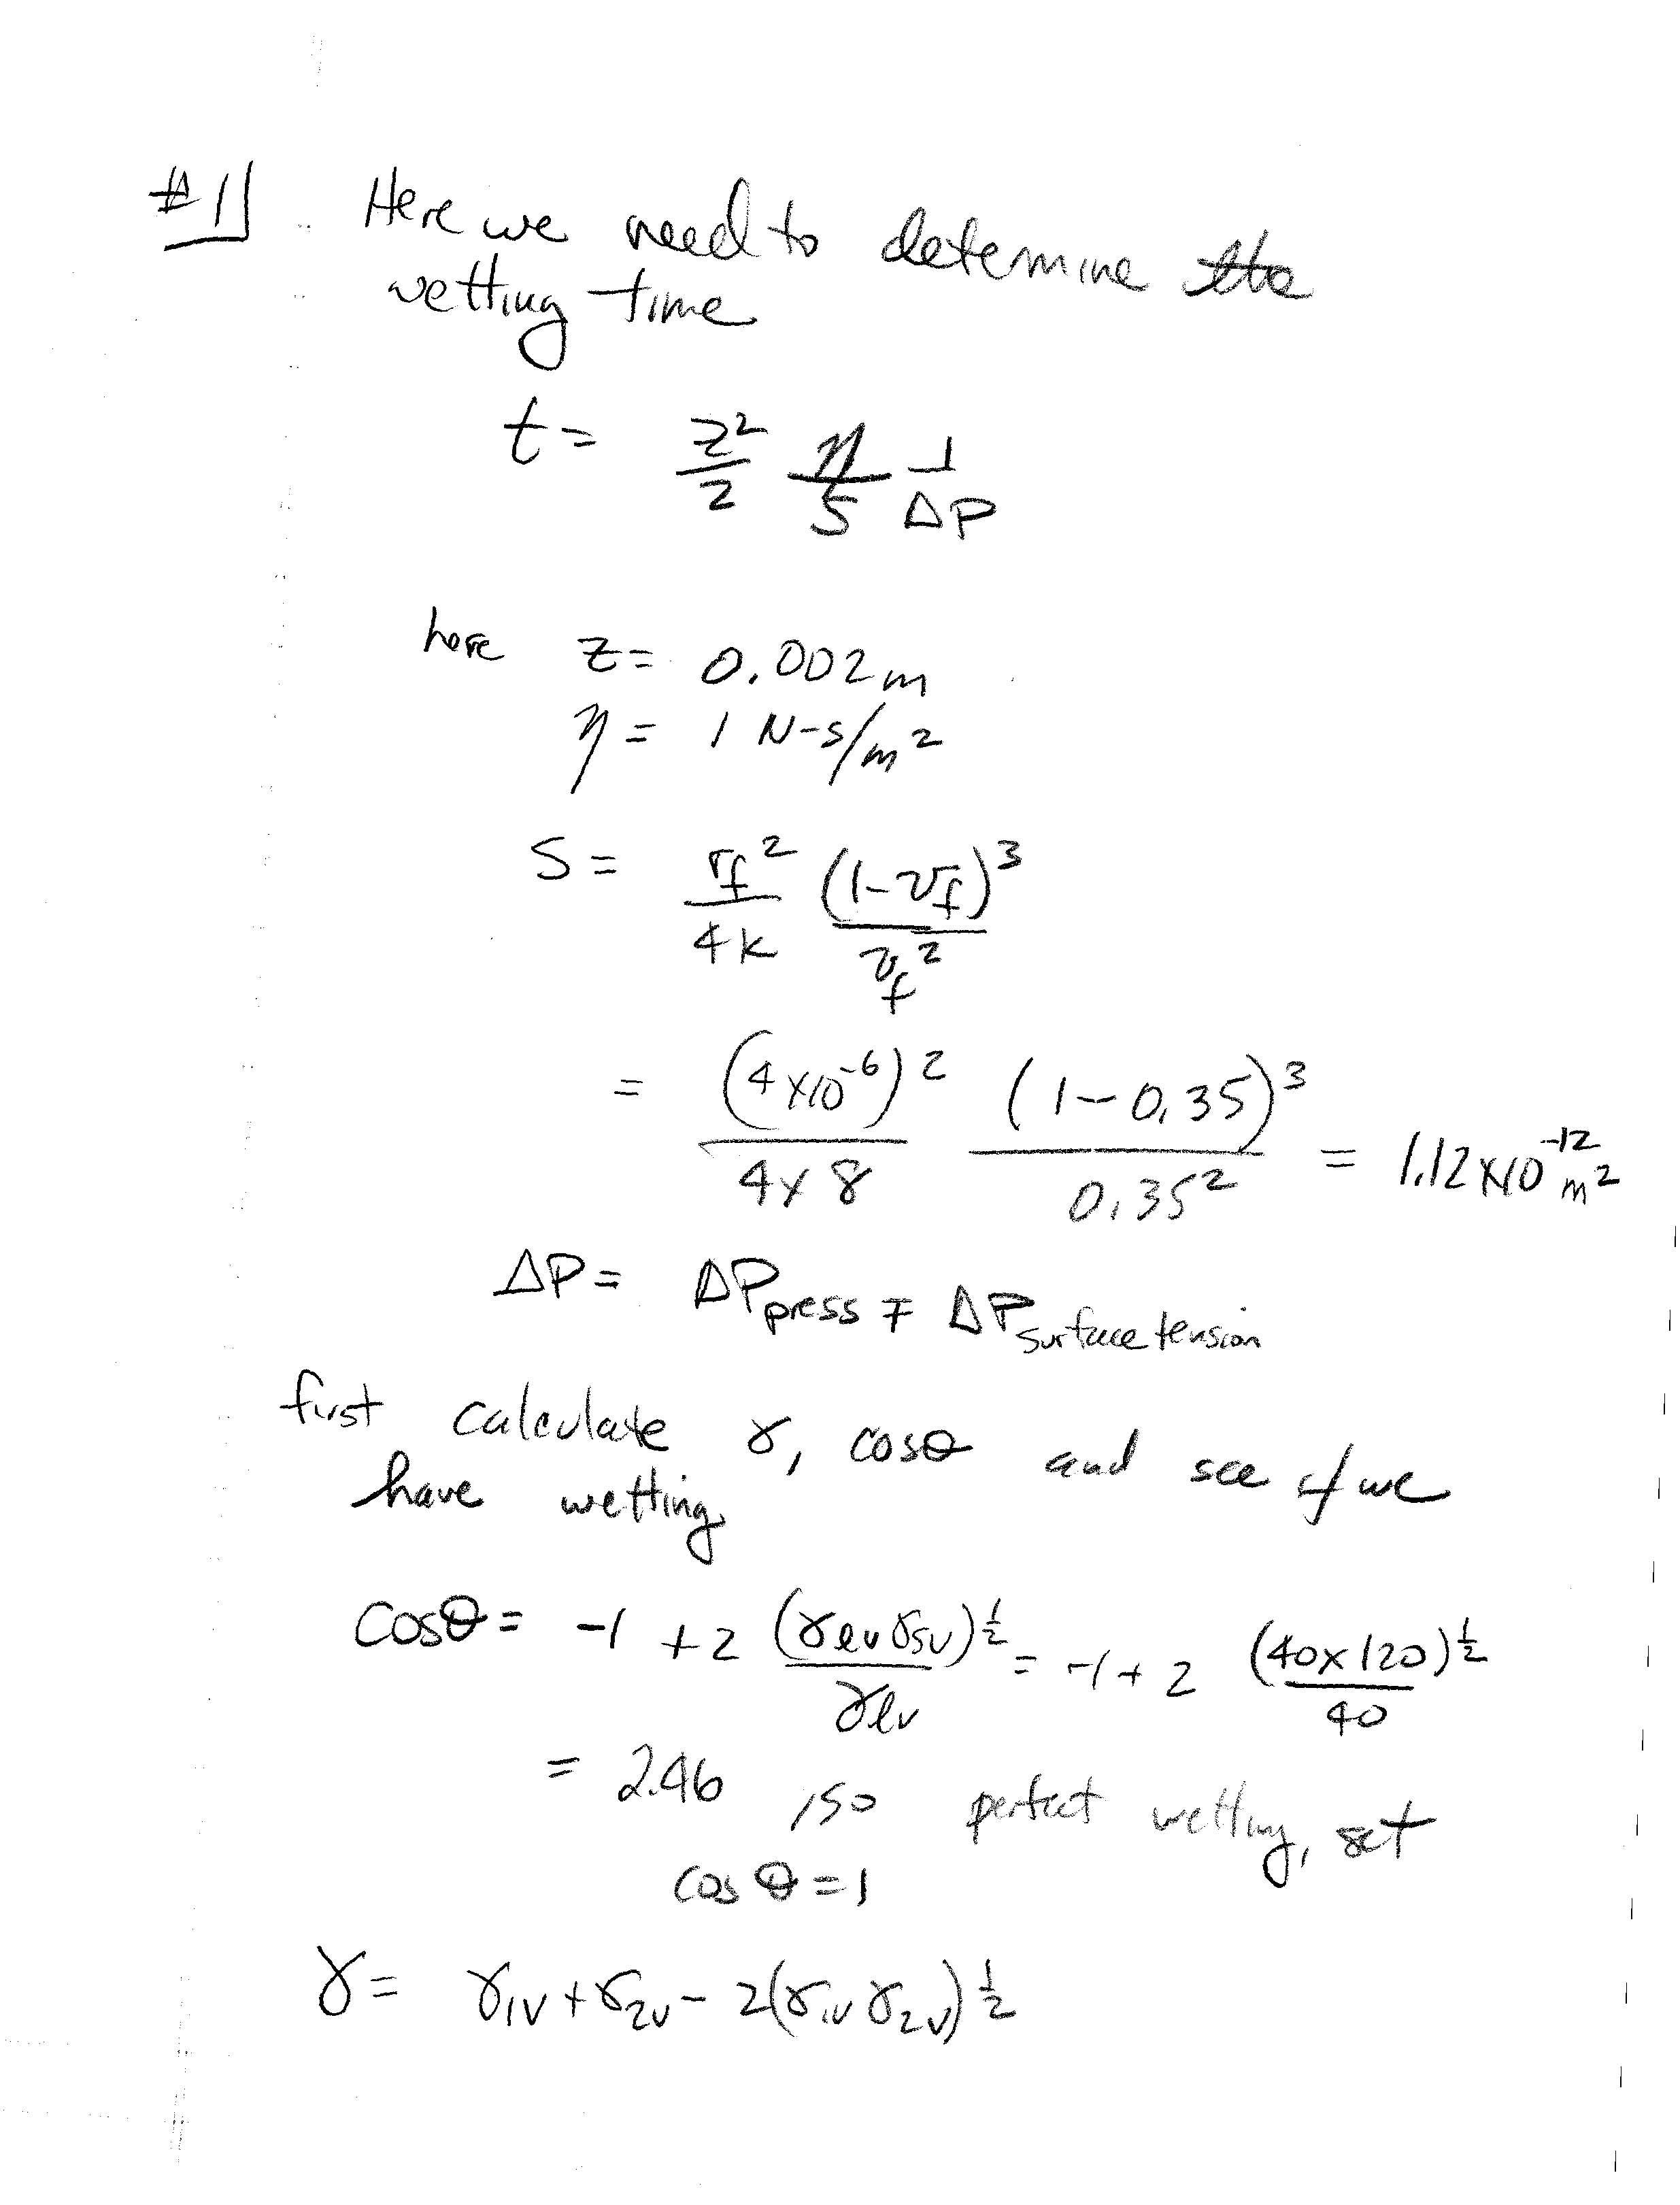 #1] Here we need to determine the
wetting time
t = z²/2 η/S 1/ΔP
here z = 0.002 m
η = 1 N-s/m²
S = r_f²/4k (1-v_f)³/v_f²
= (4x10⁻⁶)²/4x8 (1-0.35)³/0.35² = 1.12x10⁻¹² m²
ΔP = ΔP_press ∓ ΔP_surface tension
first calculate γ, cosθ and see if we
have wetting
cosθ = -1 + 2 (γ_lv γ_sv)^½/γ_lv = -1 + 2 (40x120)^½/40
= 2.46, so perfect wetting, set
cosθ = 1
γ = γ_1v + γ_2v - 2(γ_1v γ_2v)^½